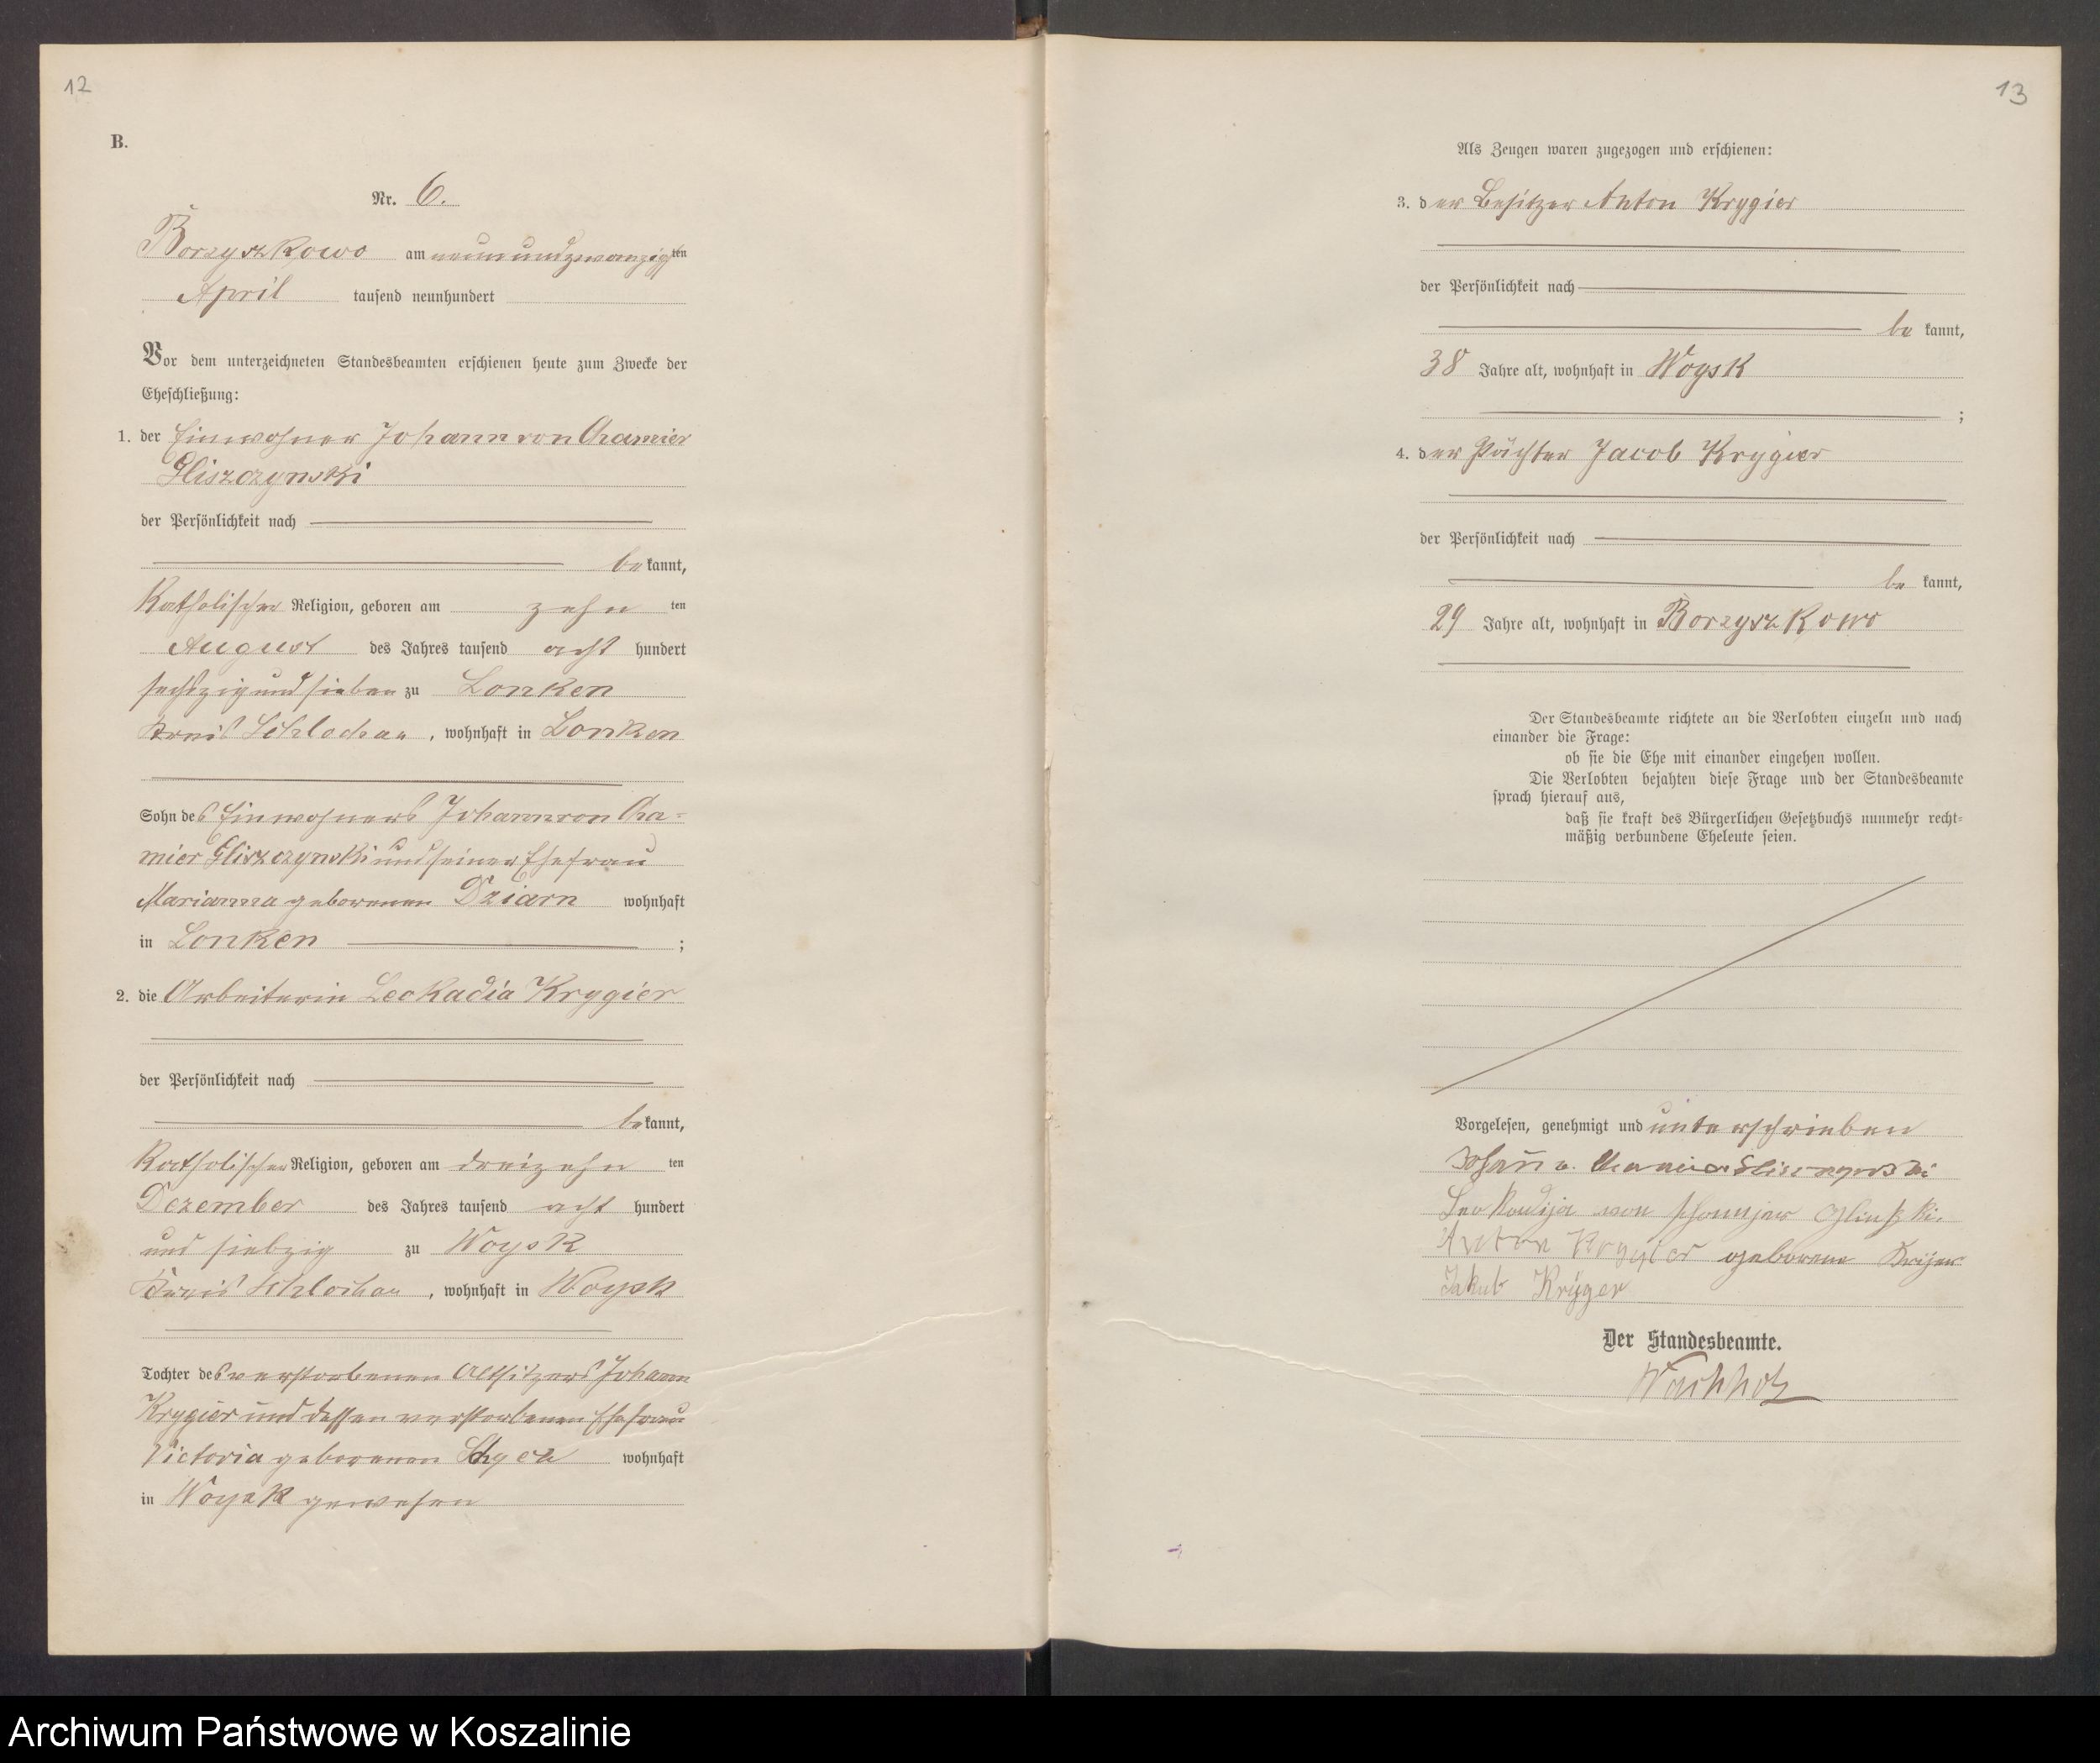 12
B.
Nr. 6.
Borzyszkowo am neunundzwanzigsten
April tausend neunhundert
Vor dem unterzeichneten Standesbeamten erschienen heute zum Zwecke der
Eheschließung:
1. der Einwohner Johann von Chamier
Gliszczynski
der Persönlichkeit nach
bekannt,
Katholischer Religion, geboren am zehn ten
August des Jahres tausend acht hundert
sechszig und sieben zu Lonken
Kreis Schlochau, wohnhaft in Lonken
Sohn des Einwohners Johann von Cha-
mier Gliszczynski und seiner Ehefrau
Marianna geborenen Dziarn wohnhaft
in Lonken ;
2. die Arbeiterin Leokadia Krygier
der Persönlichkeit nach
bekannt,
Katholischer Religion, geboren am dreizehn ten
Dezember des Jahres tausend acht hundert
und siebzig zu Woysk
Kreis Schlochau, wohnhaft in Woysk
Tochter des verstorbenen Altsitzers Johann
Krygier und dessen verstorbenen Ehefrau
Victoria geborenen wohnhaft
in Woysk gewesen
13
Als Zeugen waren zugezogen und erschienen:
3. der Besitzer Anton Krygier
der Persönlichkeit nach
be kannt,
38 Jahre alt, wohnhaft in Woysk
;
4. der Pächter Jacob Krygier
der Persönlichkeit nach
be kannt,
29 Jahre alt, wohnhaft in Borzyszkowo
Der Standesbeamte richtete an die Verlobten einzeln und nach
einander die Frage:
ob sie die Ehe mit einander eingehen wollen.
Die Verlobten bejahten diese Frage und der Standesbeamte
sprach hierauf aus,
daß sie kraft des Bürgerlichen Gesetzbuchs nunmehr recht-
mäßig verbundene Eheleute seien.
Vorgelesen, genehmigt und unterschrieben
Johann v.
Leokadija von
Anton Krygier geborene
Jakub Krüger
Der Standesbeamte.
Wachholz
Archiwum Państwowe w Koszalinie